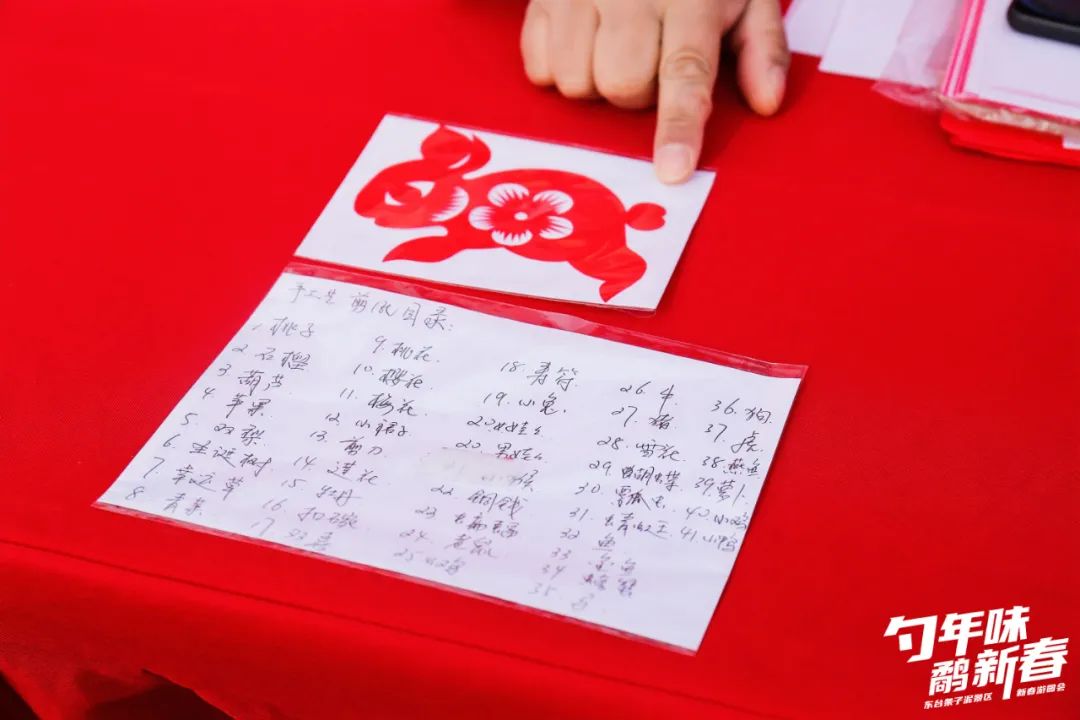 手工艺 剪纸目录:
1. 桃子
2. 石榴
3. 葫芦
4. 苹果
5. 双梨
6. 圣诞树
7. 幸运草
8. 青菜
9. 桃花
10. 樱花
11. 梅花
12. 小裙子
13. 剪刀
14. 莲花
15. 牡丹
16.
17. 双喜
18. 寿符
19. 小兔
20. 女娃娃
20. 男娃娃
猴
22. 铜钱
23. 蝙蝠
24. 老鼠
25.
26. 牛
27. 猪
28. 雪花
29. 蝴蝶
30. 瓢虫
31.
32. 鱼
33. 金鱼
34. 螃蟹
35.
36. 狗
37. 虎
38. 燕鱼
39. 萝卜
40. 小鸡
41. 小鸭
勺年味
鹬新春
东台条子泥景区 新春游园会